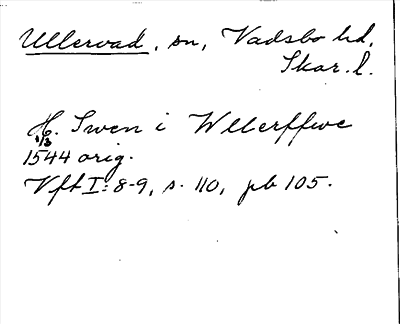 Ullervad, sn, Vadsbo hd,
Skar. l.
H. Swen i Wllerffwe
1/3
1544 orig.
Vft I: 8-9, s. 110, pb 105.